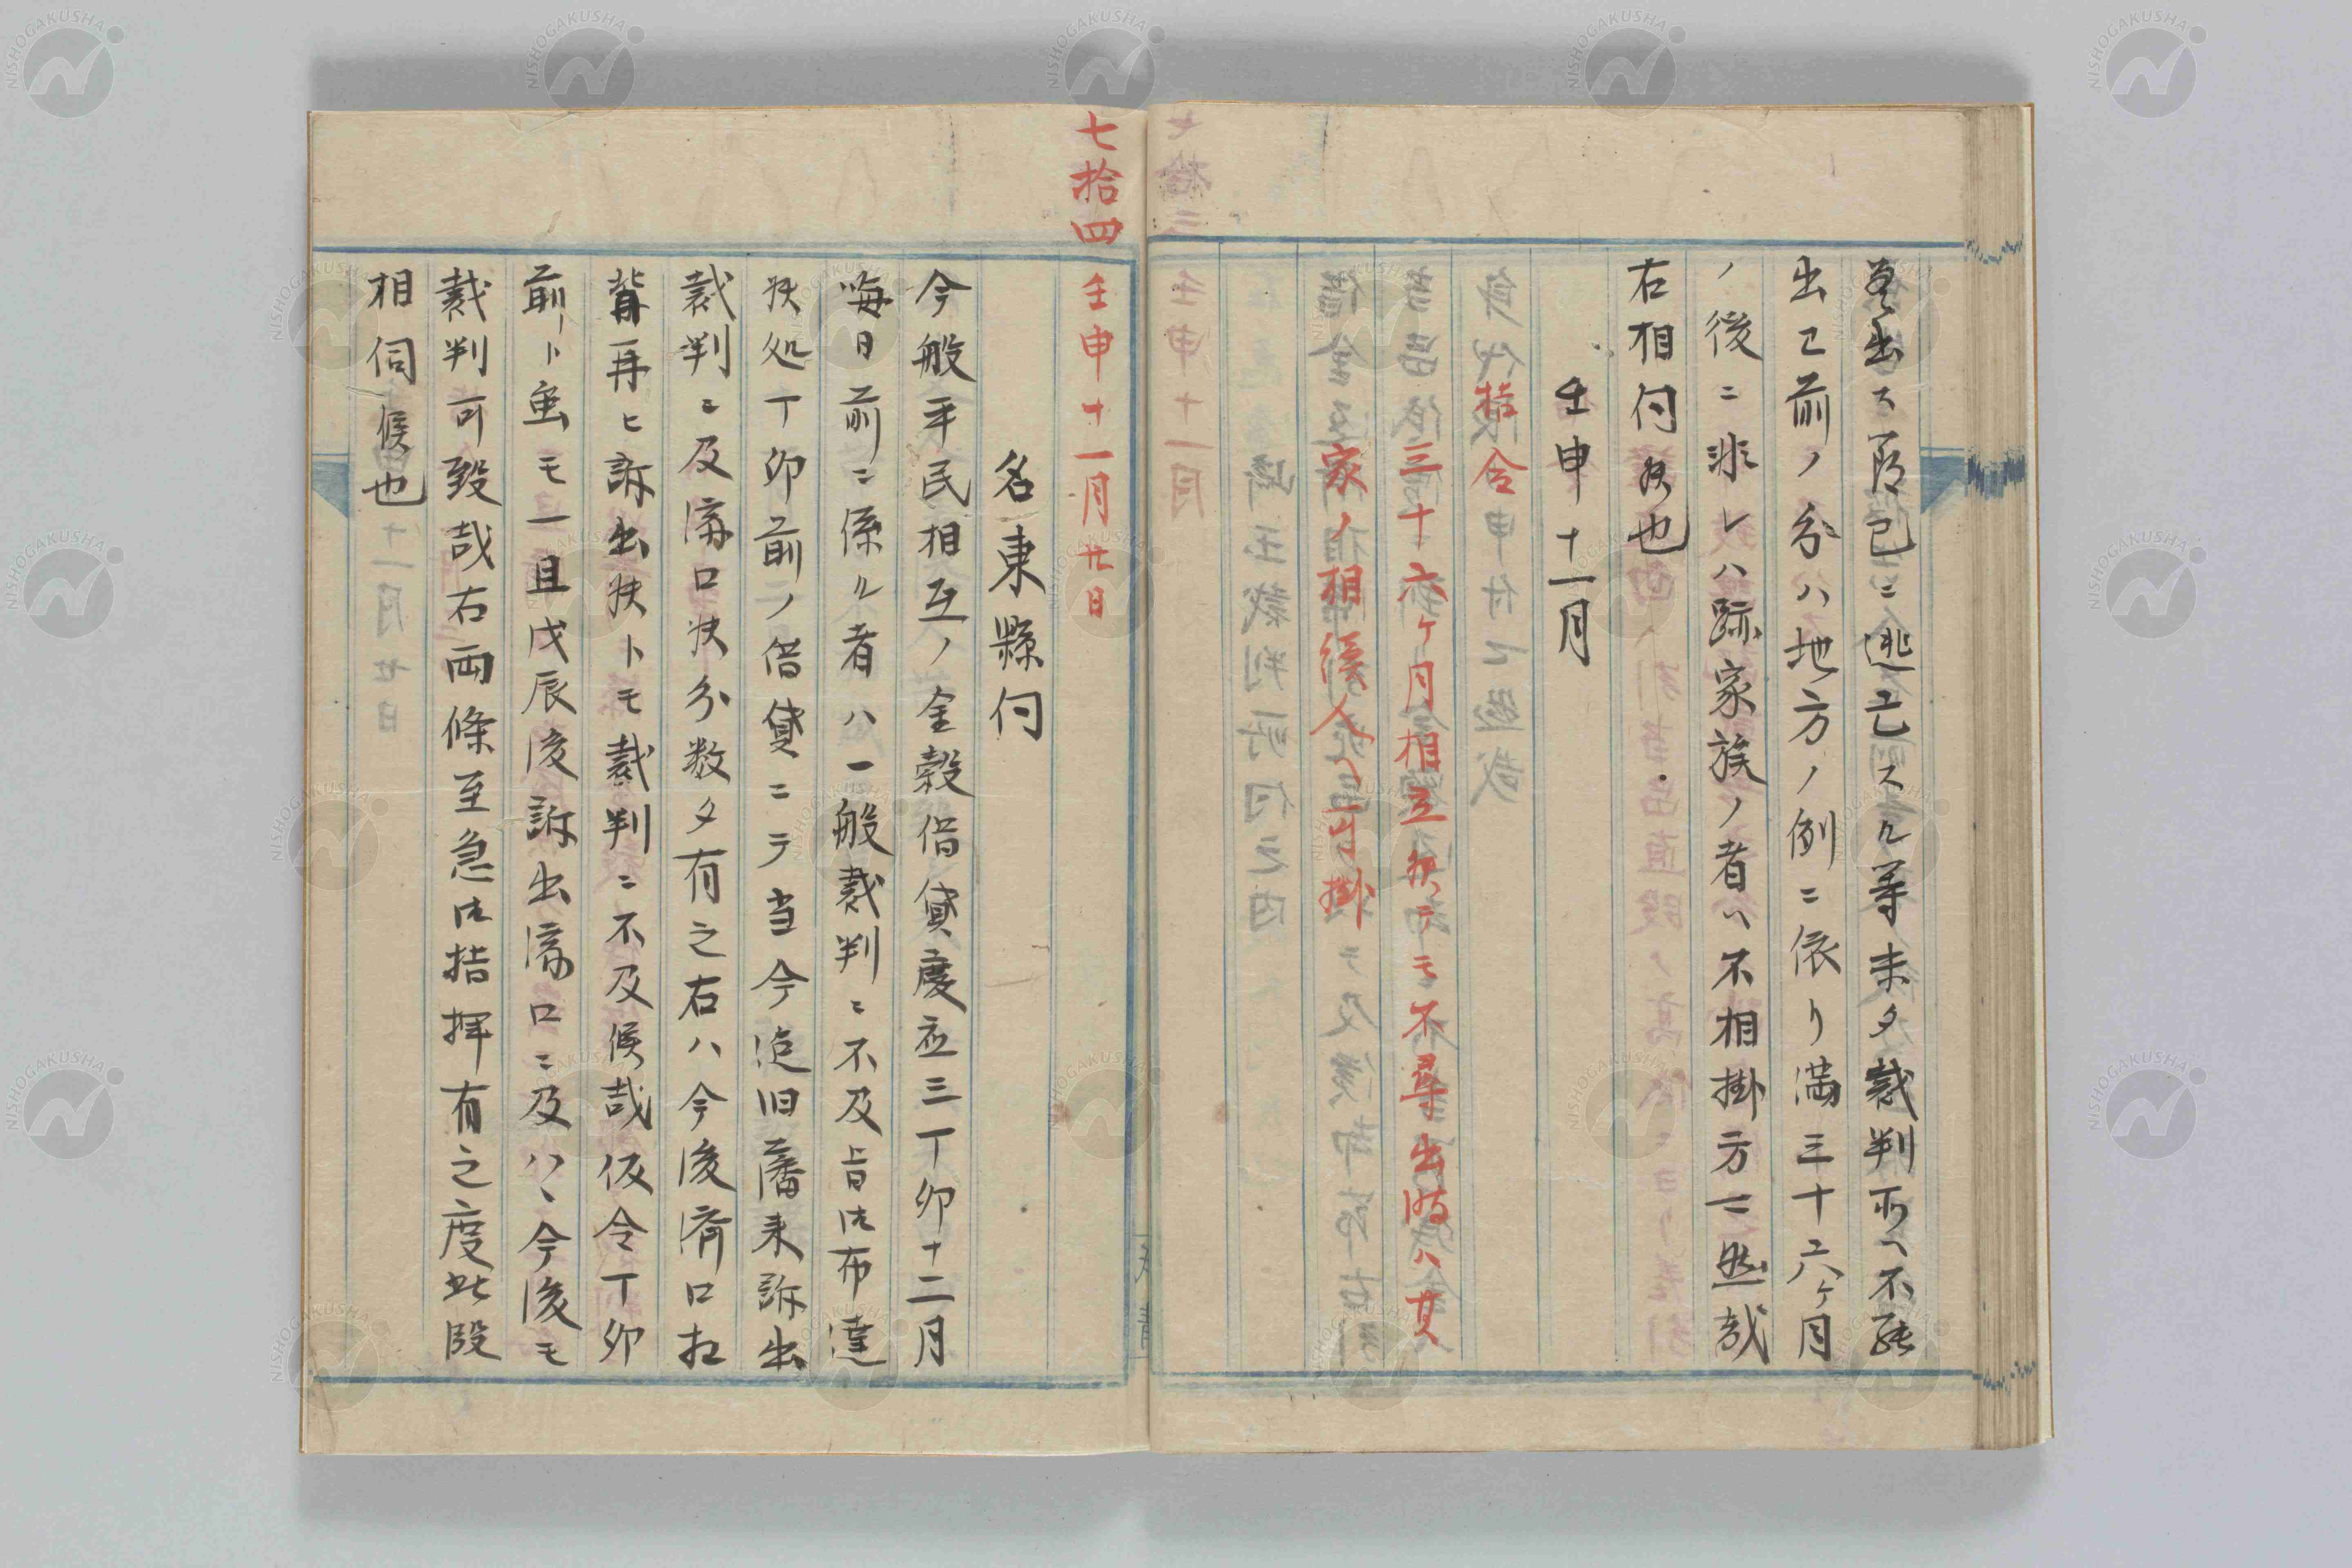 出已前ノ分ハ地方ノ例ニ依リ満三十六ケ月
ノ後ニ非レハ跡家族ノ者ヘ不相掛方ニ哉
右相伺候也
壬申十一月
指令
三十六ケ月相立候テモ不尋出時ハ其
家ノ相続人ヘ可掛
七拾四
壬申十一月廿日
名東縣伺
今般平民相互ノ金穀借貸慶応三丁卯十二月
晦日前ニ係ル者ハ一般裁判ニ不及旨御布達
候処丁卯前ノ借貸ニテ当今迄旧藩来訴出
裁判ニ及済口候分数多有之右ハ今後済口相
背再ヒ訴出候トモ裁判ニ不及候哉仮令丁卯
前ト雖モ一旦戊辰後訴出済口ニ及ハヽ今後モ
裁判可致哉右両條至急御指揮有之度此段
相伺候也